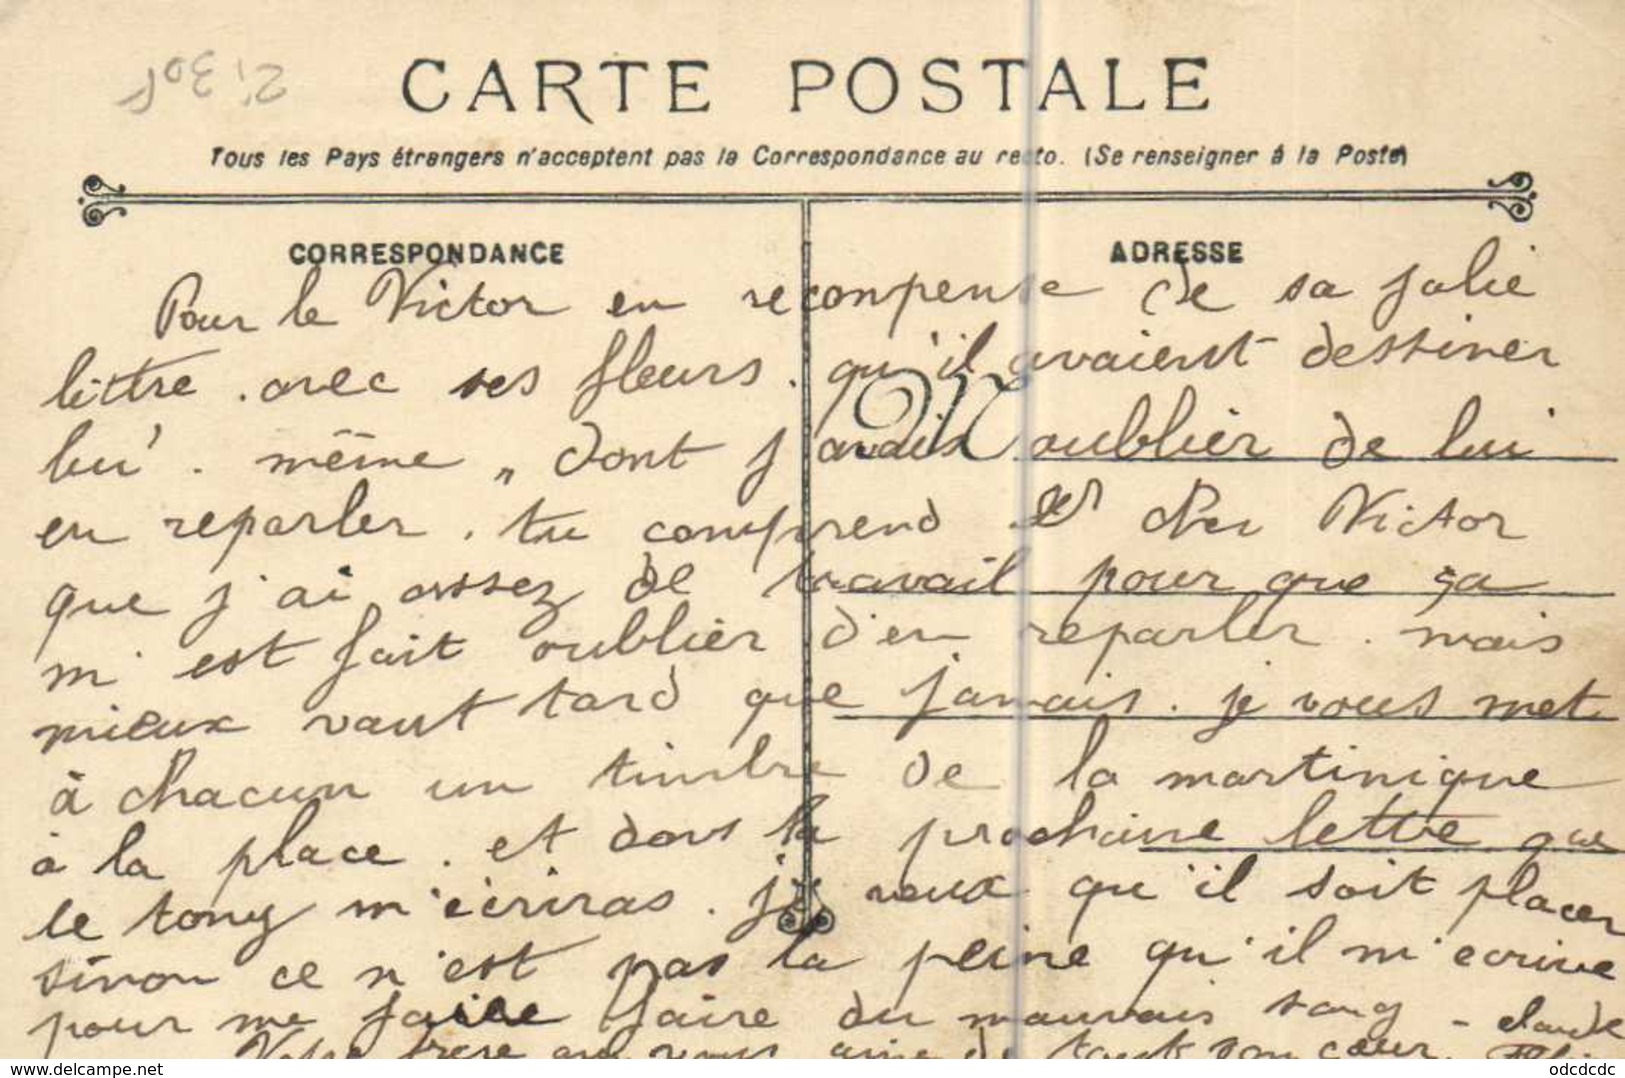 2,30f
CARTE POSTALE
Tous les Pays étrangers n'acceptent pas la Correspondance au recto. (Se renseigner à la Poste)
CORRESPONDANCE
ADRESSE
Pour le Victor en recompense de sa jolie
lettre . avec ses fleurs . qu'il avaient destiner
lui . même „ dont j avais oublier de lui
en reparler . tu comprend cher Victor
que j'ai assez de travail pour que ça
m' est fait oublier d'en reparler . mais
mieux vaut tard que jamais . je vous met
à chacun un timbre de la martinique
à la place . et dans la prochaine lettre que
le tony m'écriras . je veux qu'il soit placer
sinon ce n'est pas la peine qu'il m'ecrive
pour me faire faire du mauvais sang - claude
Votre frere qui vous aime de tout son cœur
delcampe.net
odcdcdc